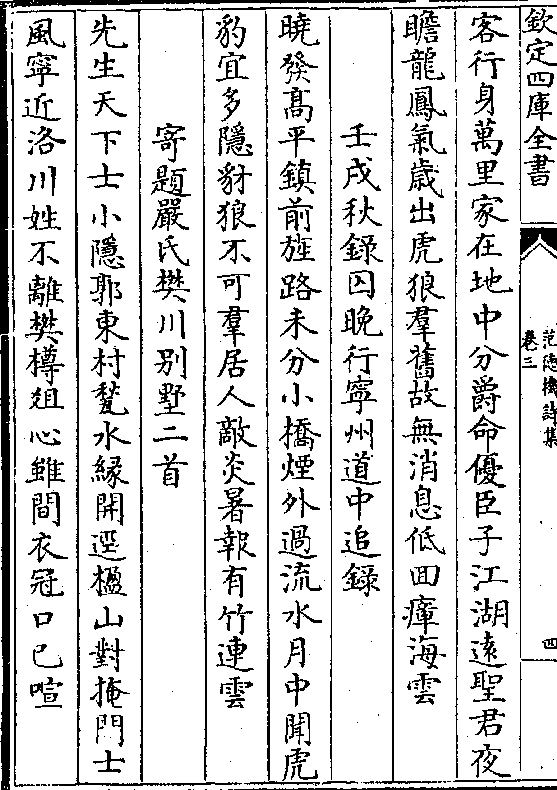 欽定四庫全書
范德機詩集
卷三
四
客行身萬里家在地中分爵命優臣子江湖遠聖君夜
瞻龍鳳氣歳出虎狼羣舊故無消息低回瘴海雲
壬戌秋錄囚晚行寧州道中追錄
曉發髙平鎮前旌路未分小橋煙外過流水月中聞虎
豹宜多隱豺狼不可羣居人敵炎暑報有竹連雲
寄題嚴氏樊川别墅二首
先生天下士小隱郭東村甃水縁開逕楹山對掩門士
風寧近洛川姓不離樊樽俎心雖間衣冠口已喧